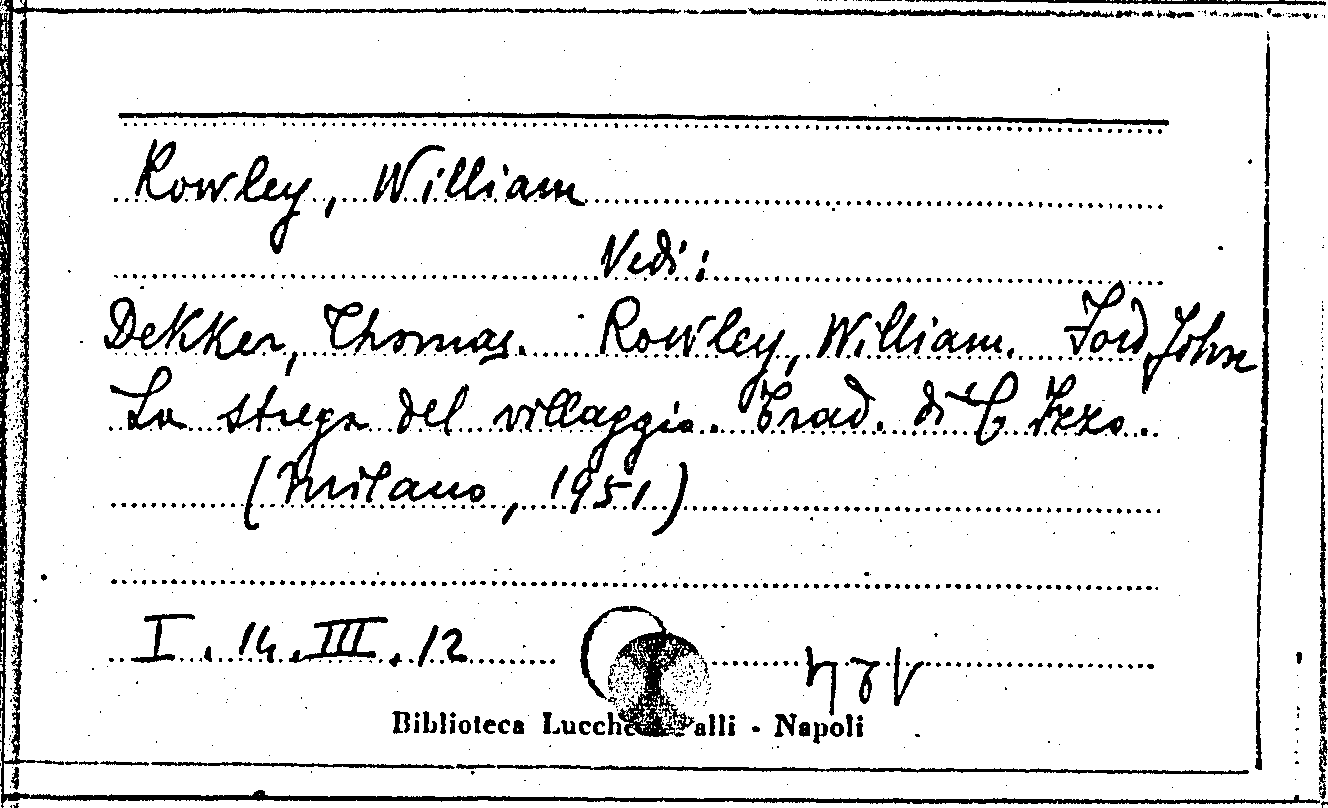 Rowley, William
Vedi:
Dekker, Thomas. Rowley, William. Ford, John
La strega del villaggio. Trad. di C Izzo.
(Milano, 1951)
I. 14. III. 12
Biblioteca Lucche Palli - Napoli